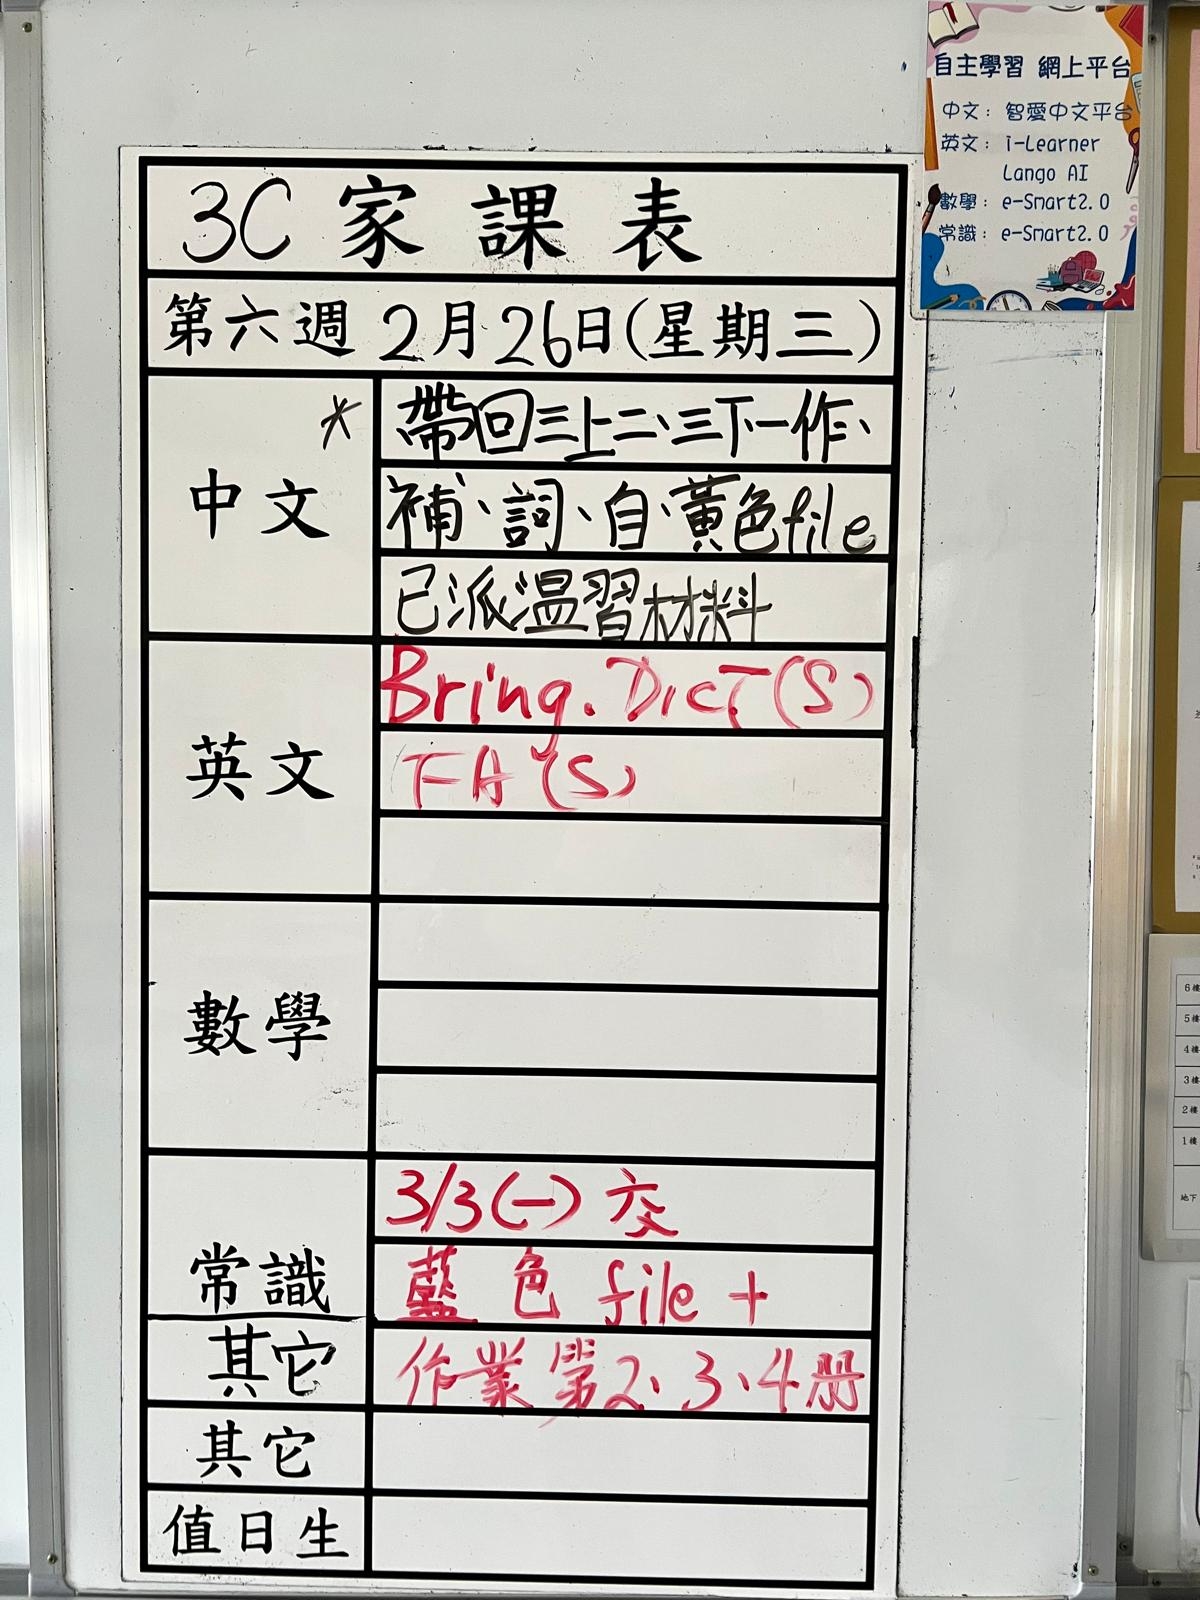 自主學習 網上平台
中文：智愛中文平台
英文：i-Learner
Lango AI
數學：e-Smart2.0
常識：e-Smart2.0
3C 家課表
第六週 2月26日(星期三)
中文
* 帶回三上二、三下一作、
補、詞、自、黃色file
已派温習材料
英文
Bring. Dict(S)
FA (S)
數學
常識
3/3(一) 交
藍色 file +
其它
作業第2、3、4册
其它
值日生
6樓
5樓
4樓
3樓
2樓
1樓
地下